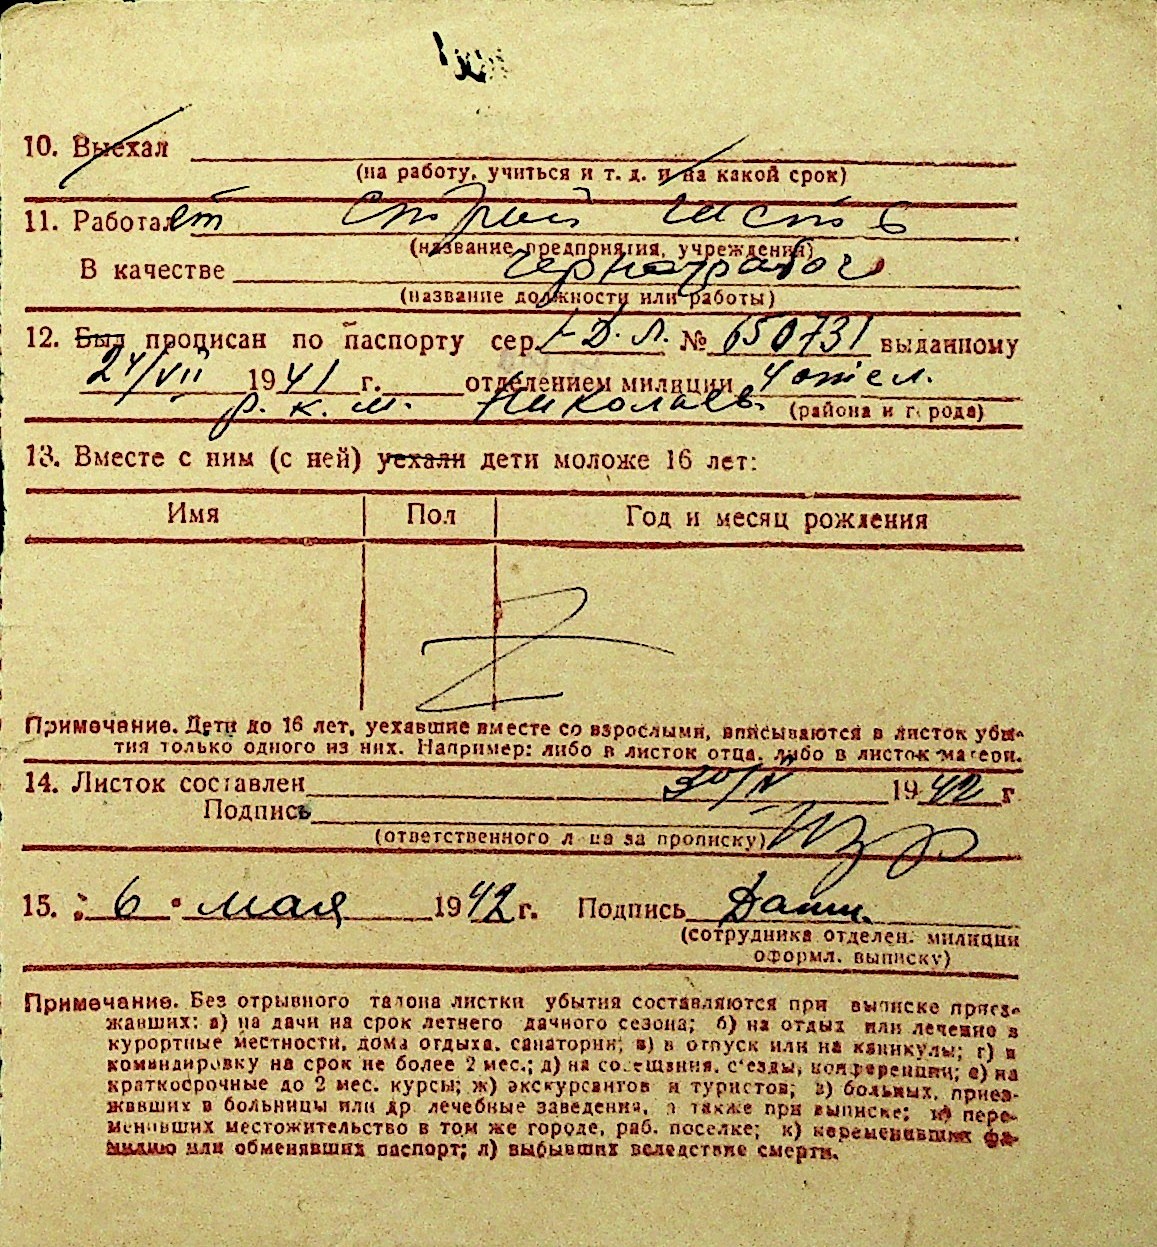 10. Выехал
(на работу, учиться и т. д. и на какой срок)
11. Работает
(название предприятия, учреждения)
В качестве чернорабоч
(название должности или работы)
12. Был прописан по паспорту сер. № 650731 выданному
24/VII 1941 г. отделением милиции 4 отдел.
р. к. м. Николаев. (района и города)
13. Вместе с ним (с ней) уехали дети моложе 16 лет:
Имя Пол Год и месяц рождения
Примечание. Дети до 16 лет, уехавшие вместе со взрослыми, вписываются в листок убы-
тия только одного из них. Например: либо в листок отца, либо в листок матери.
14. Листок составлен 30/IV 1942 г.
Подпись
(ответственного лица за прописку)
15. "6" мая 1942 г. Подпись
(сотрудника отделен. милиции
оформл. выписку)
Примечание. Без отрывного талона листки убытия составляются при выписке приез-
жавших: а) на дачи на срок летнего дачного сезона; б) на отдых или лечение в
курортные местности, дома отдыха, санатории; в) в отпуск или на каникулы; г) в
командировку на срок не более 2 мес.; д) на совещания, с'езды, конференции; е) на
краткосрочные до 2 мес. курсы; ж) экскурсантов и туристов; з) больных, приез-
жавших в больницы или др. лечебные заведения, а также при выписке: и) пере-
менивших местожительство в том же городе, раб. поселке; к) переменивших фа-
милию или обменявших паспорт; л) выбывших вследствие смерти.